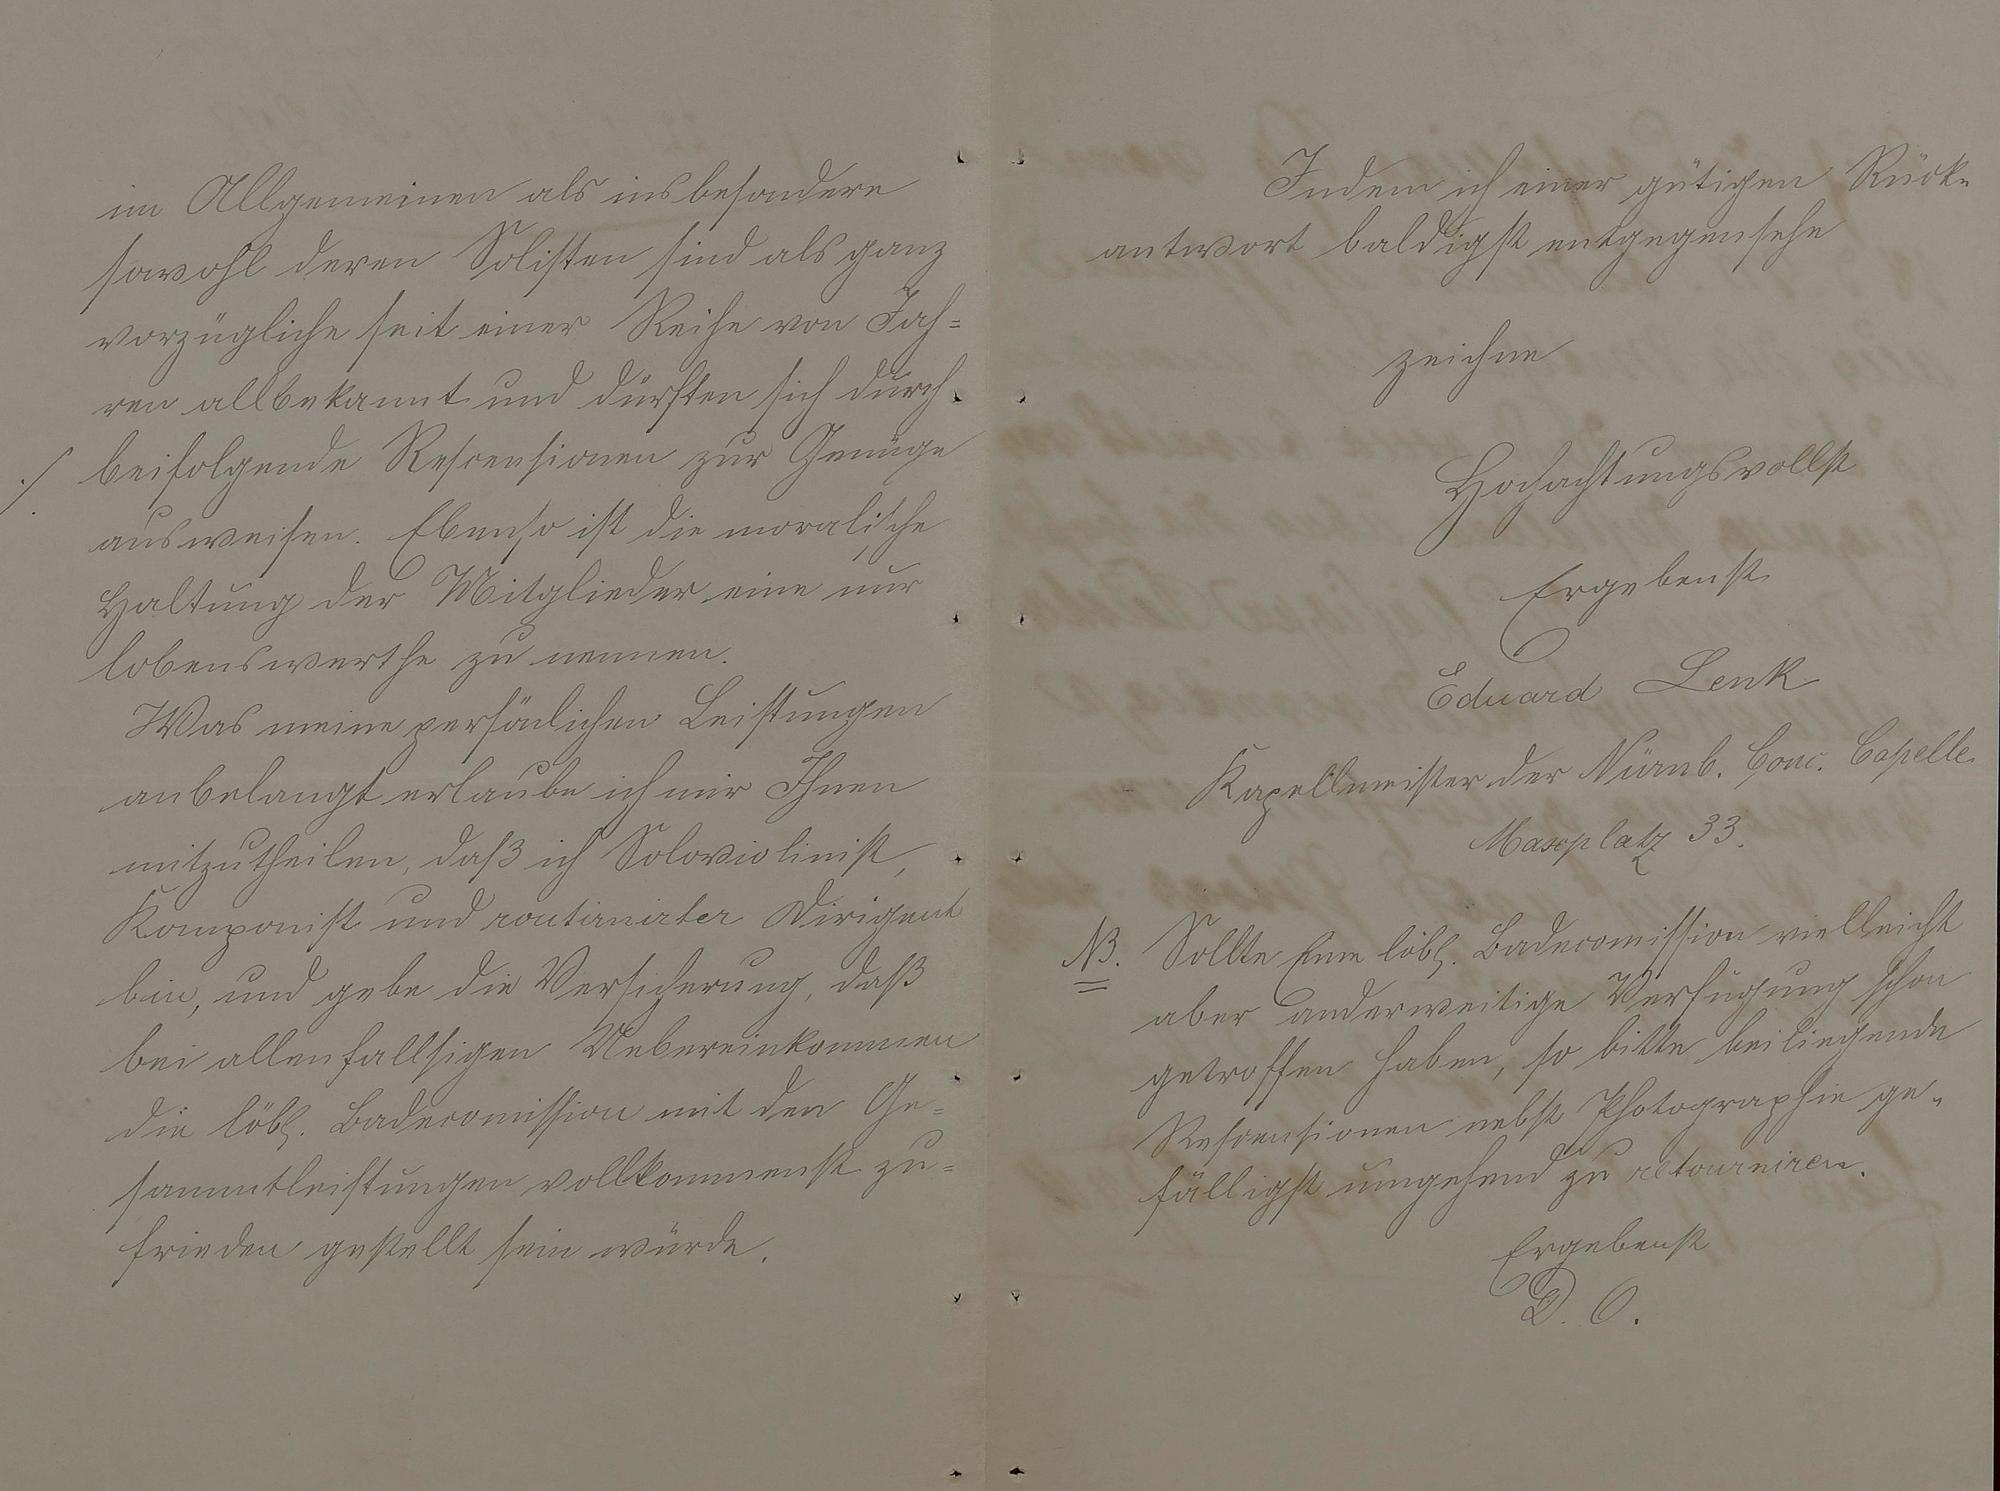 im Allgemeinen als insbesondere
sowohl deren Solisten sind als ganz
vorzügliche seit einer Reihe von Jah=
ren allbekannt und dürften sich durch
./. beifolgende Rescensionen zur Genüge
ausweisen. Ebenso ist die moralische
Haltung der Mitglieder eine nur
lobenswerthe zu nennen.
Was meine persönlichen Leistungen
anbelangt erlaube ich mir Ihnen
mitzutheilen, daß ich Soloviolinist,
Komponist und routinirter Dirigent
bin, und gebe die Versicherung, daß
bei allenfallsigen Uebereinkommen
die löbl. Badecomission mit den Ge=
sammtleistungen vollkommenst zu=
frieden gestellt sein würde.
Indem ich einer gütigen Rück=
antwort baldigst entgegensehe
zeichne
Hochachtungsvollst
Ergebenst
Eduard Lenk
Kapellmeister der Nürnb. Conc. Capelle
Maxplatz 33.
NB. Sollte Eine löbl. Badecomission vielleicht
aber anderweitige Verfügung schon
getroffen haben, so bitte beiliegende
Rescensionen nebst Photographie ge=
fälligst umgehend zu retourniren.
Ergebenst
D. O.